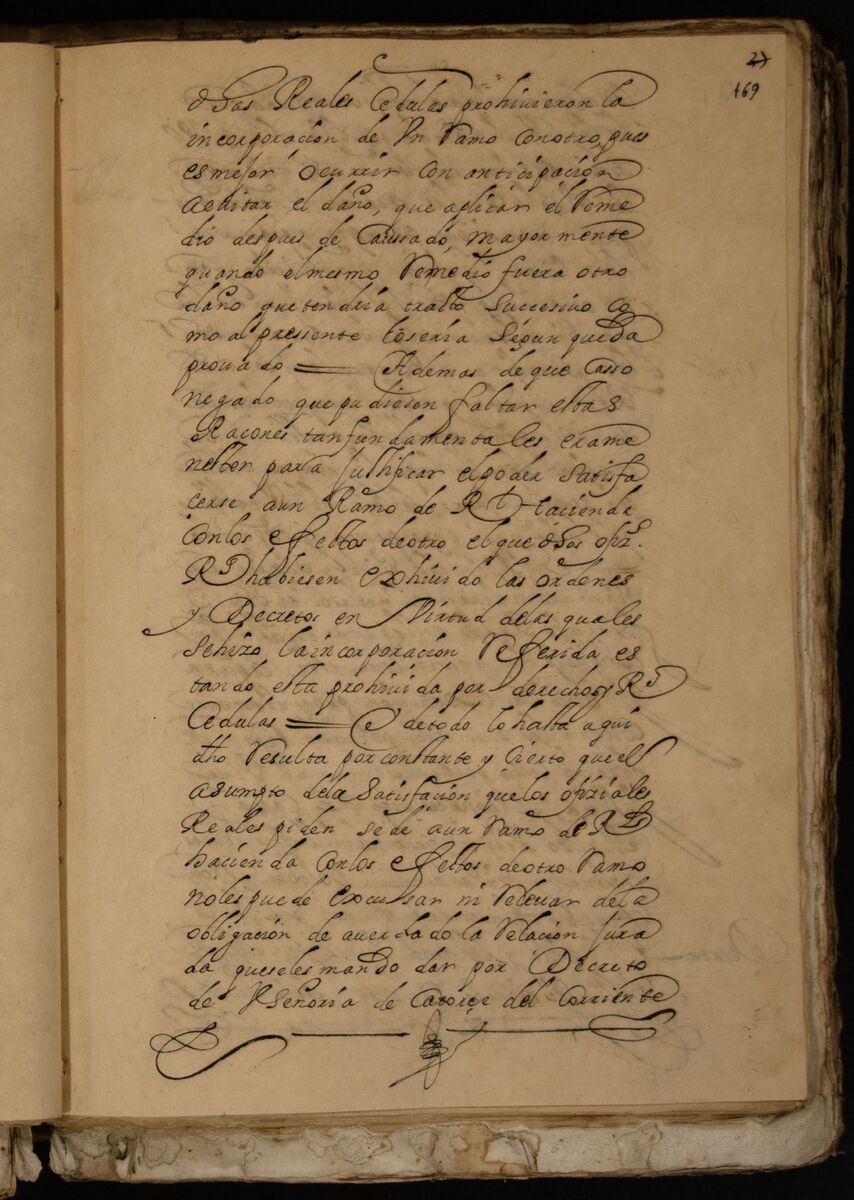 27
169
dhas Reales Cedulas prohivieron la
incorporacion de Vn Ramo con otro, pues
es mejor ocurrir con anticipación
a evitar el daño, que aplicar el Reme
dio despues de Caussado, mayormente
quando el mesmo Remedio fuera otro
daño que tendria tracto successivo co
mo al pressente lo seria segun queda
prouado ═ Ademas de que Casso
negado que pudiesen faltar estas
Raçones tan fundamentales era me
nester para justificar el poder satisfa
cerse a un Ramo de Rl Hacienda
Con los efectos de otro el que dhos ofizs
Rs habiesen exhiuido las ordenes
y Decretos en Virtud de las quales
se hizo la incorporacion Referida es
tando esta prohiuida por derechos y Rs
Cedulas ═ Y de todo lo hasta aqui
dho Resulta por constante y cierto que el
asumpto de la satisfacion que los ofiziales
Reales piden se dé a un Ramo de Rl
hacienda con los efectos de otro Ramo
no les puede excussar ni Releuar de la
obligación de auer dado la Relacion jura
da que se les mando dar por Decreto
de VSeñoria de Catorçe del Corriente